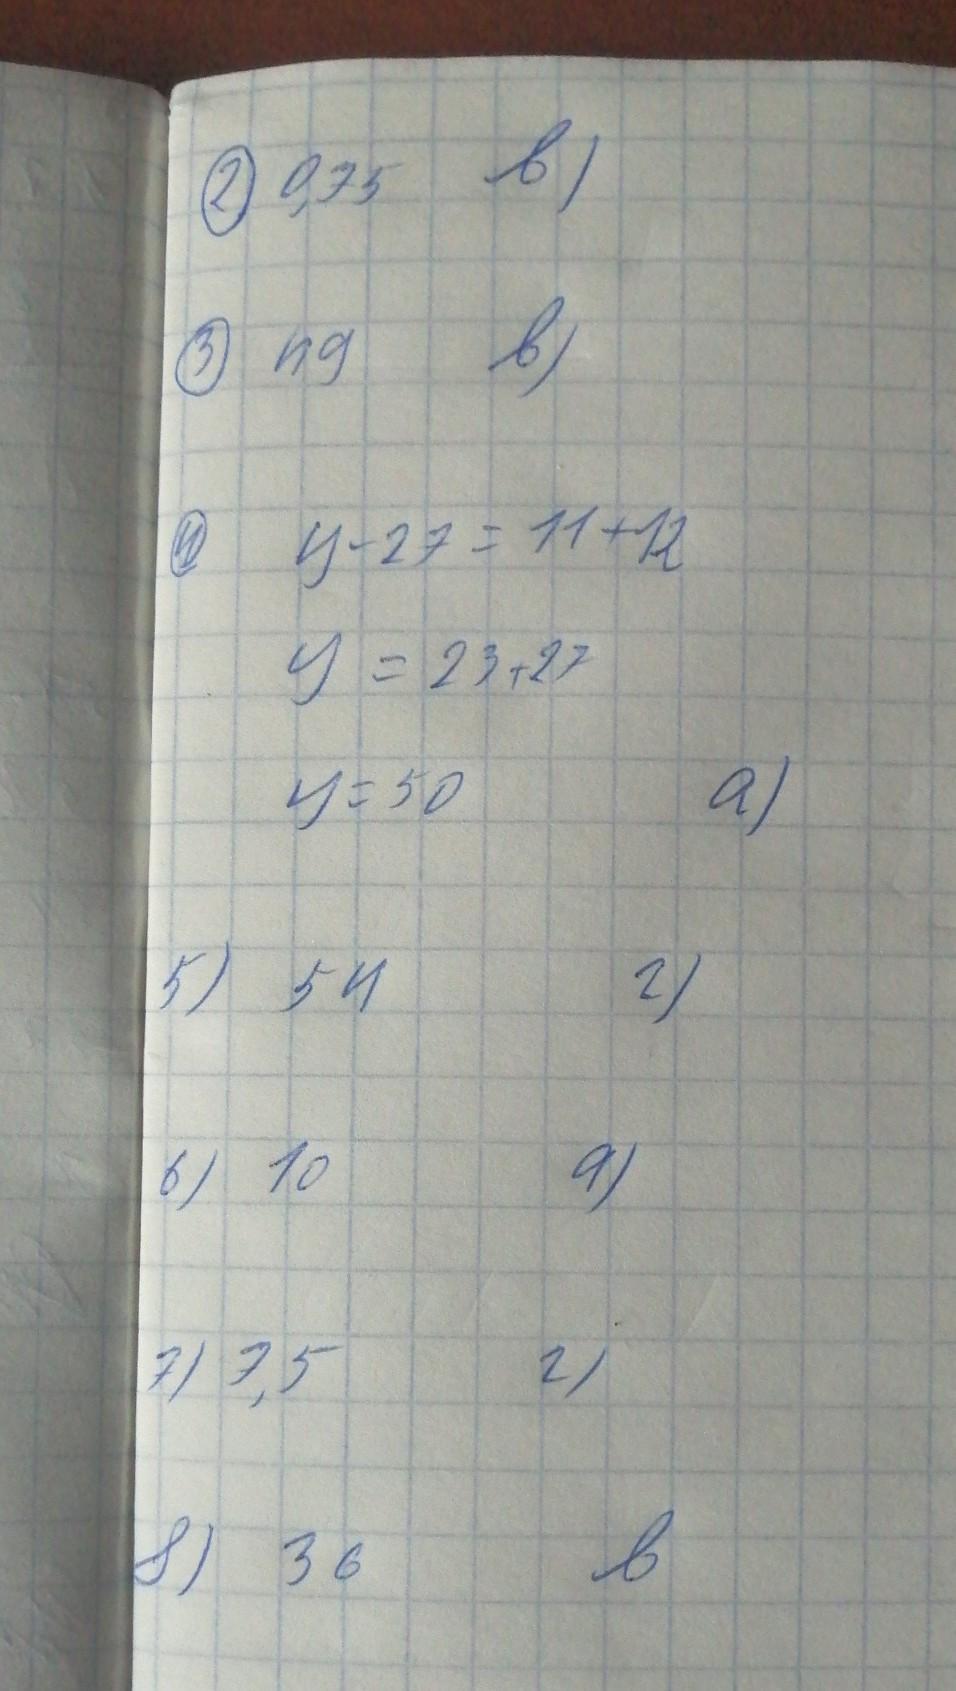 2 0,75 в)
3 49 в)
4 y-27=11+12
y = 23+27
y=50 а)
5) 54 г)
6) 10 а)
7) 7,5 г)
8) 36 в